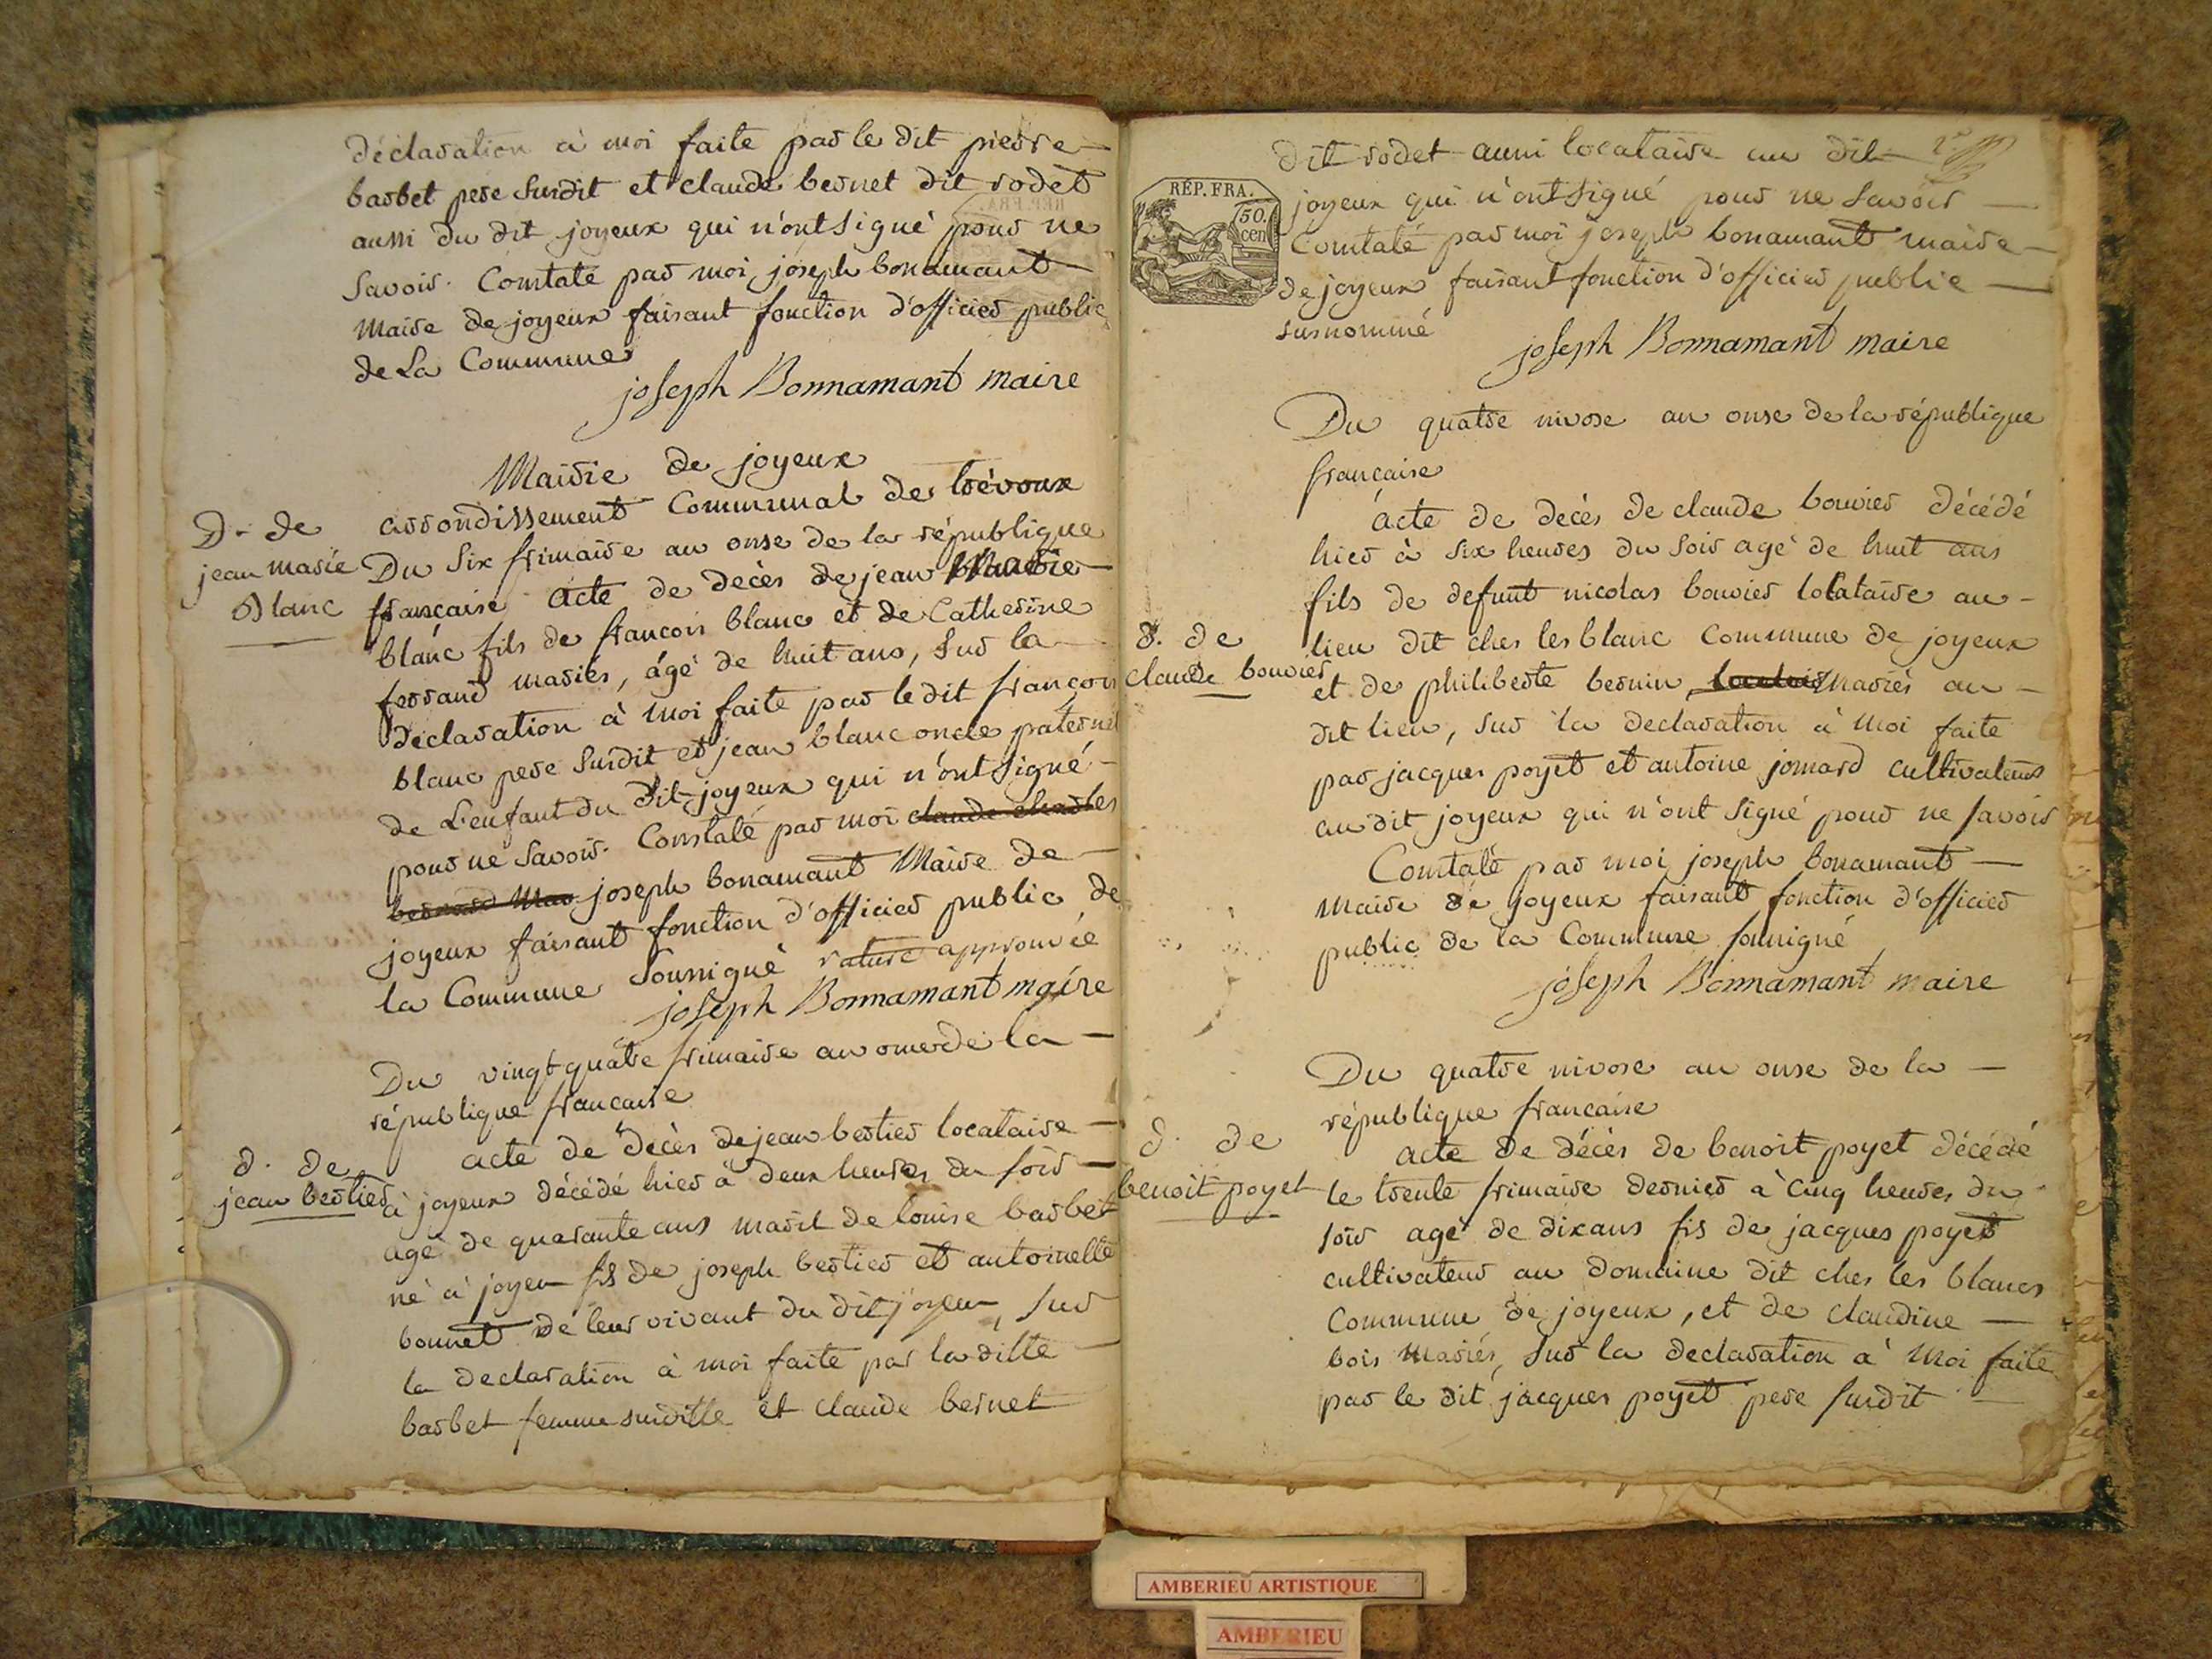 déclaration à moi faite par le dit pierre
barbet pere susdit et claude bernet dit rodet
aussi du dit joyeux qui n'ont signé pour ne
savoir. Constaté par moi joseph bonamant
maire de joyeux faisant fonction d'officier public
de La Commune
joseph Bonnamant maire
Mairie de joyeux
arrondissement Communal de trévoux
D. de
jean marie
Blanc
Du Six frimaire an onse de la république
francaise acte de decès de jean Marie
blanc fils de francois blanc et de Catherine
ferrand mariés, ágé de huit ans, sur la
déclaration à moi faite par le dit françois
blanc pere susdit et jean blanc oncle paternel
de L'enfant du dit joyeux qui n'ont signé
pour ne savoir. Constaté par moi claude charles
bernard Mar joseph bonamant Maire de
joyeux faisant fonction d'officier public de
la Commune soussigné rature approuvée
joseph Bonnamant maire
Du vingt quatre frimaire an onse de la
république francaise
d. de
jean bertier
acte de decès de jean bertier locataire
à joyeux décédé hier à deux heures du soir
agé de quarante ans marit de louise barbet
né à joyeu fils de joseph bertier et antoinette
bonnet de leur vivant du dit joyeu, sur
la declaration à moi faite par la ditte
barbet femme susditte et claude bernet
2e
RÉP. FRA.
50.
cen
dit rodet aussi locataire au dit
joyeux qui n'ont signé pour ne savoir
Constaté par moi joseph bonamant maire
de joyeux faisant fonction d'officier public
susnommé
joseph Bonnamant maire
Du quatre nivose an onse de la république
francaise
d. de
claude bouvier
acte de decès de claude bouvier décédé
hier à six heures du soir agé de huit ans
fils de defunt nicolas bouvier locataire au
lieu dit ches les blanc Commune de joyeux
et de philiberte bernin mariés au
dit lieu, sur la declaration à moi faite
par jacques poyet et antoine jomard cultivateurs
au dit joyeux qui n'ont signé pour ne savoir
Constaté par moi joseph bonamant
maire de joyeux faisant fonction d'officier
public de la Commune soussigné
joseph Bonnamant maire
Du quatre nivose an onse de la
république francaise
d. de
benoit poyet
acte de décès de benoit poyet décédé
le trente frimaire dernier à cinq heures du
soir agé de dix ans fis de jacques poyet
cultivateur au domaine dit ches les blancs
Commune de joyeux, et de claudine
bois mariés, sur la declaration a moi faite
par le dit jacques poyet pere susdit
AMBERIEU ARTISTIQUE
AMBERIEU